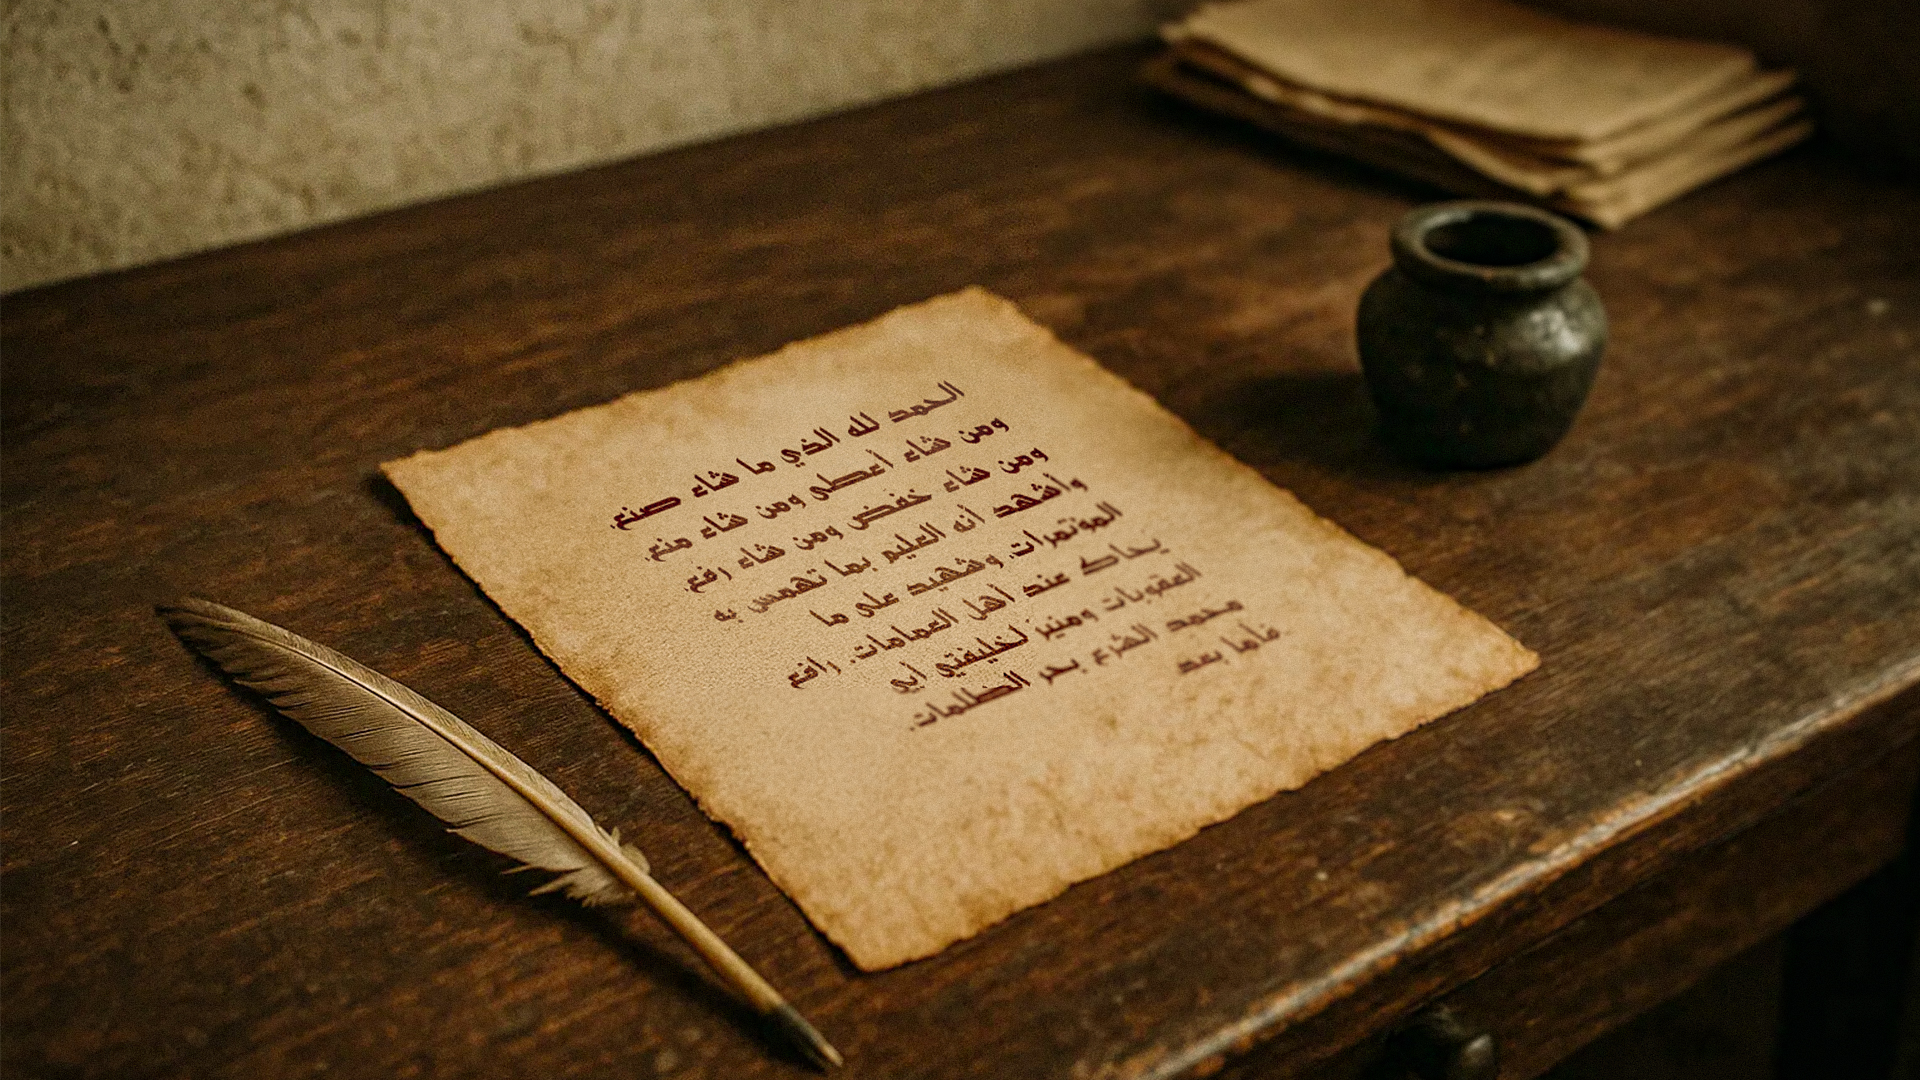 الحمد لله الذي ما شاء صنع.
ومن شاء أعطى ومن شاء منع.
ومن شاء خفض ومن شاء رفع.
وأشهد أنه العليم بما تهمس به
المؤتمرات. وشهيد على ما
يحاك عند أهل العمامات. رافع
العقوبات ومنير لخليفتي أبي
محمد القرع بحر الظلمات.
فأما بعد